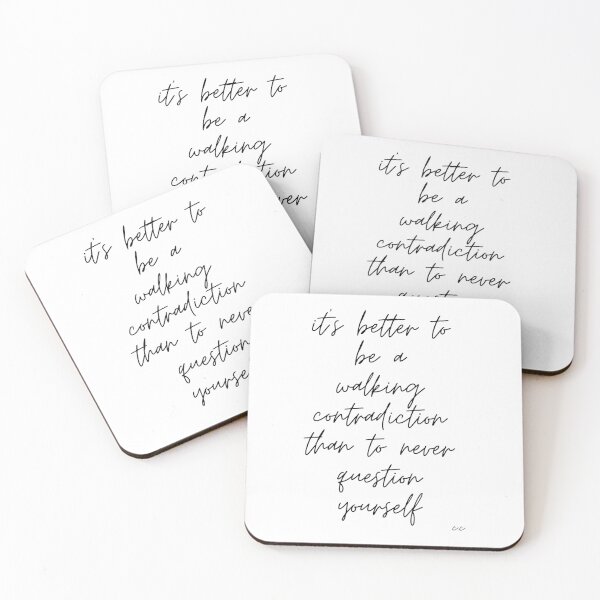 it's better to
be a
walking
contradiction
than to never
it's better to
be a
walking
contradiction
than to never
it's better to
be a
walking
contradiction
than to never
question
yourself
it's better to
be a
walking
contradiction
than to never
question
yourself
cc